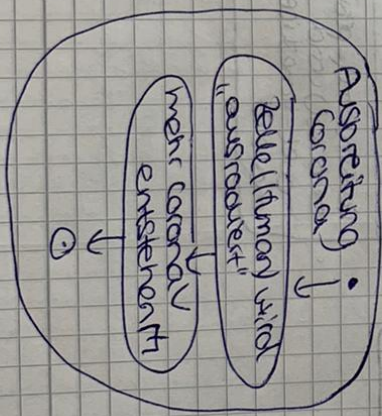 Ausbreitung
Corona
Zelle (Human) wird
"ausradiert"
mehr Coronav
entstehen